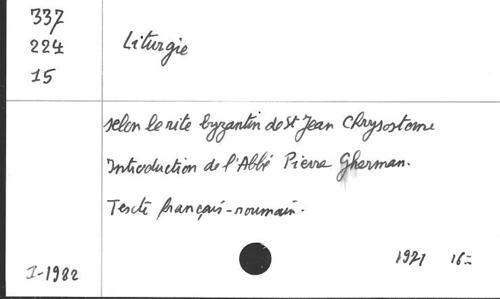 337
224
15
Liturgie
selon le rite byzantin de St Jean Chrysostome
Introduction de l'Abbé Pierre Gherman.
Texte français-roumain.
I-1982
1971 16=